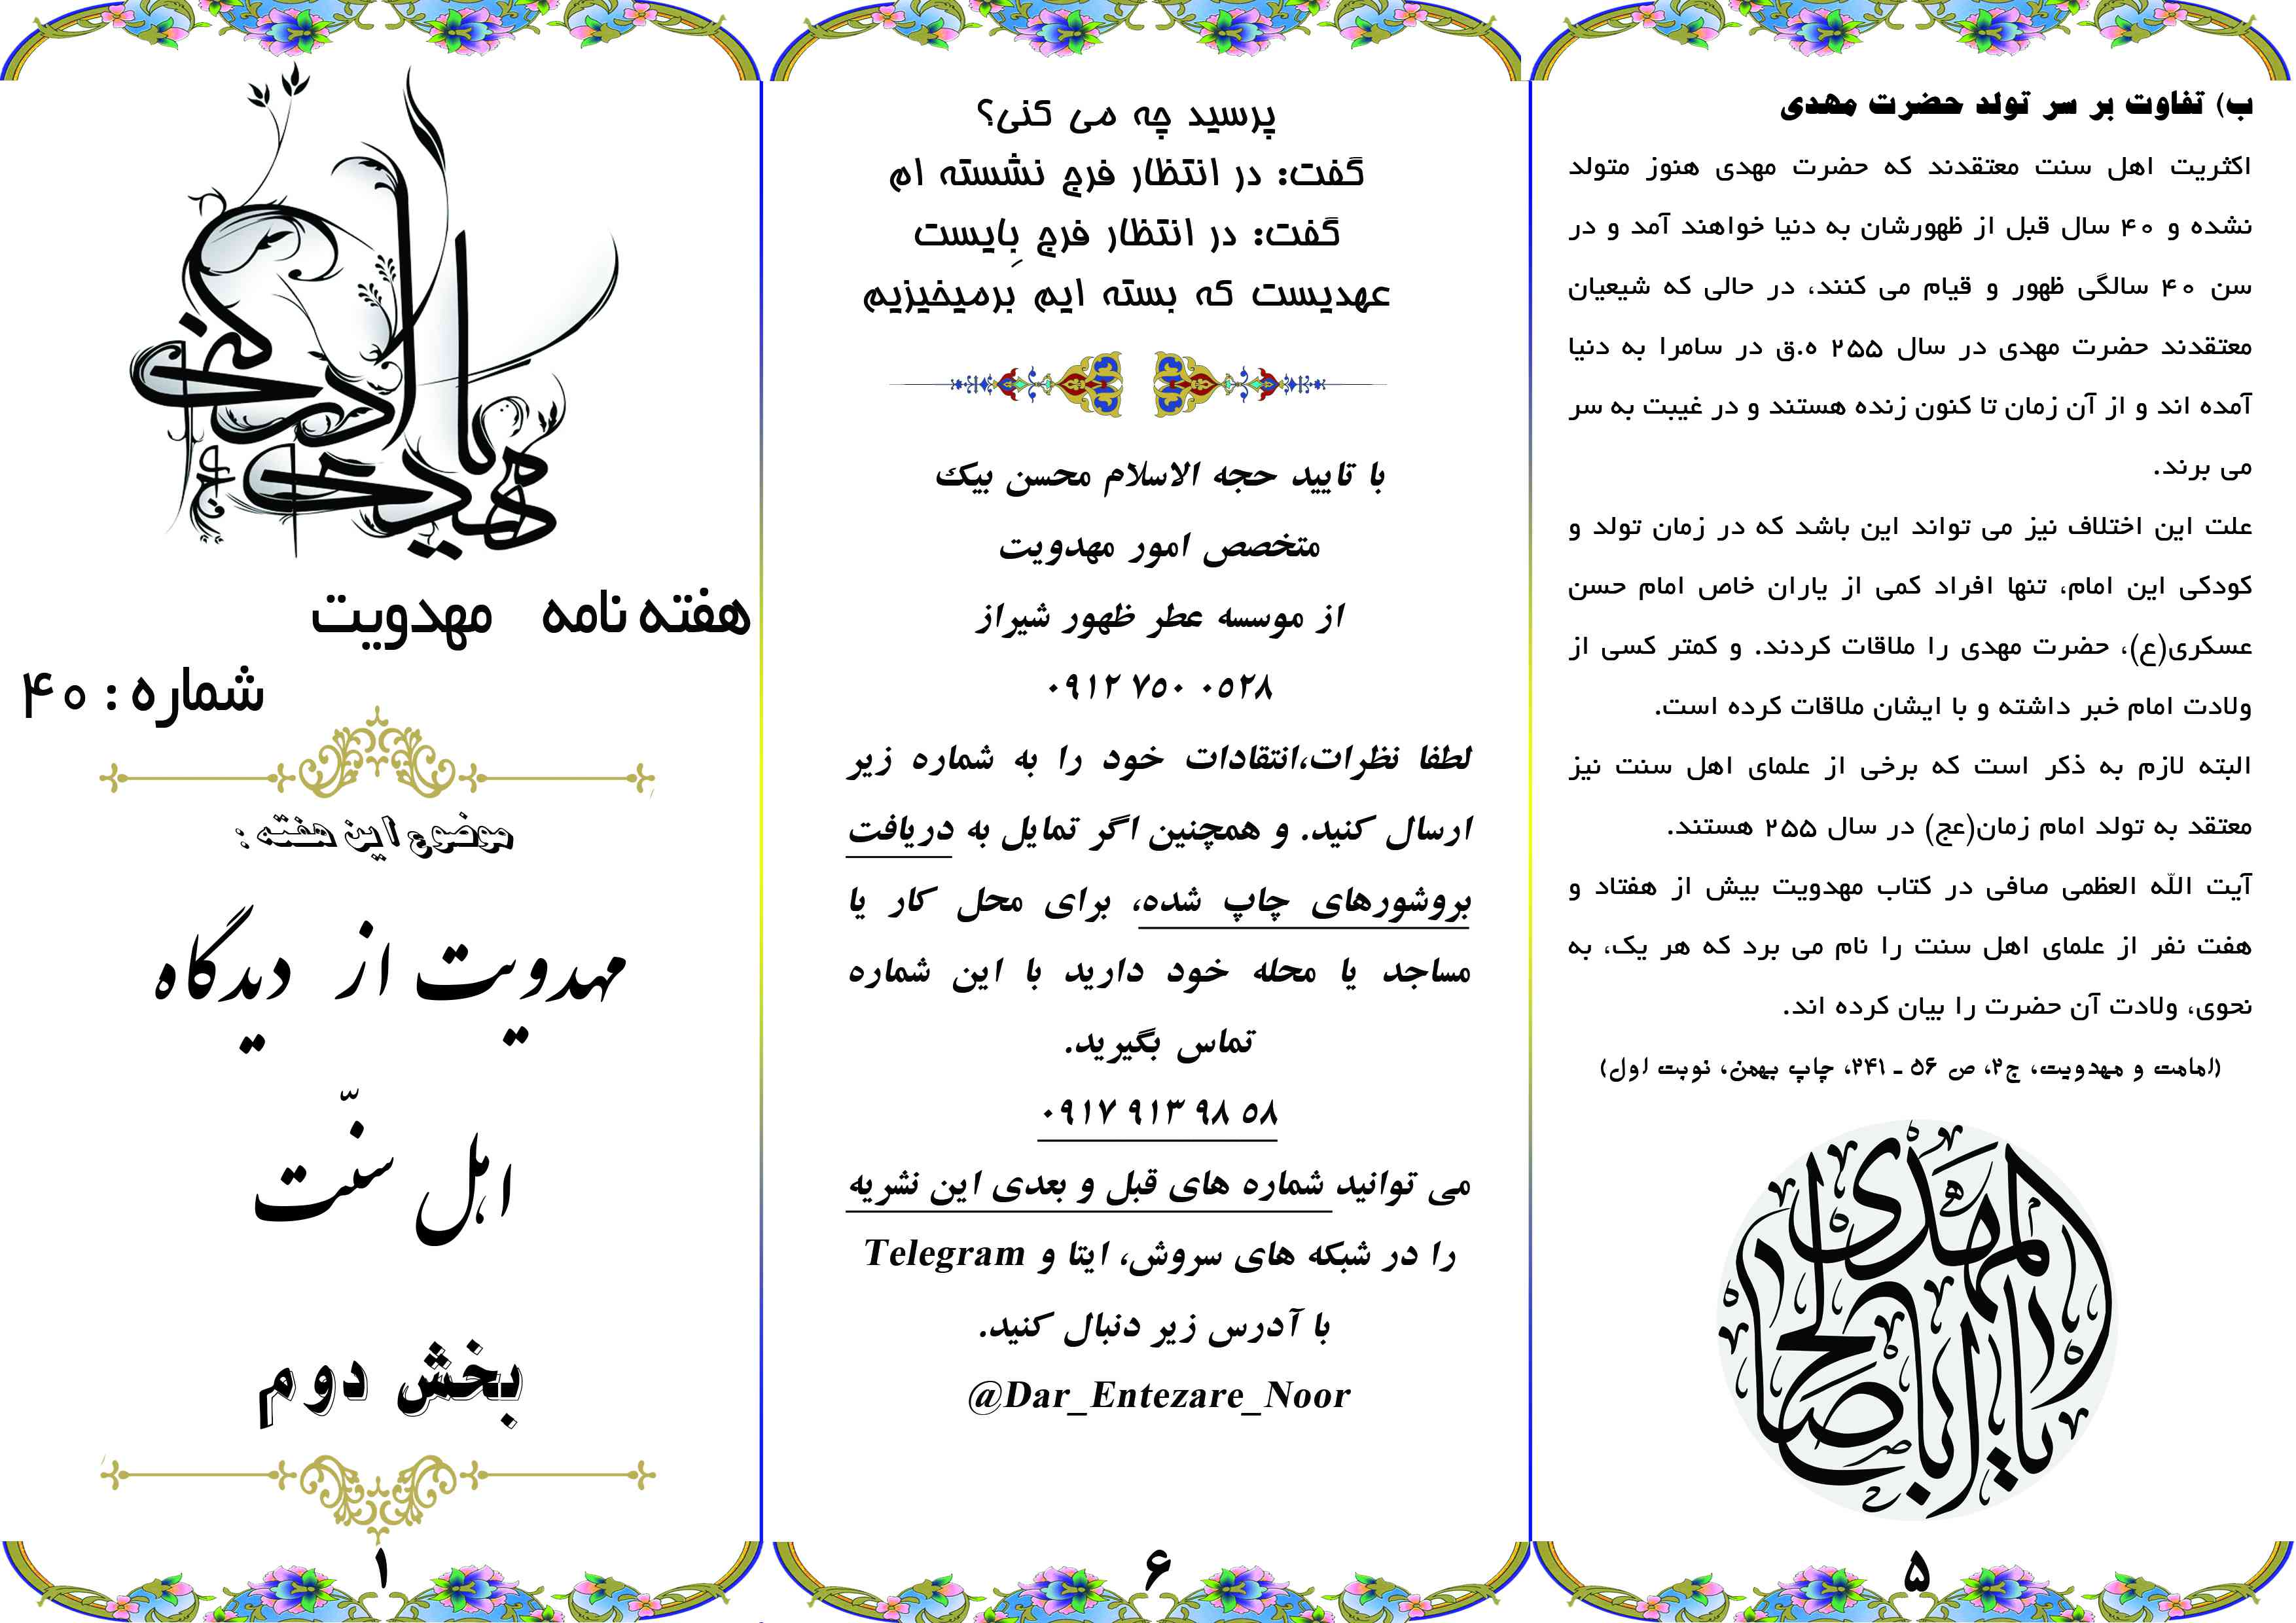 ب) تفاوت بر سر تولد حضرت مهدی
اکثریت اهل سنت معتقدند که حضرت مهدی هنوز متولد
نشده و ۴۰ سال قبل از ظهورشان به دنیا خواهند آمد و در
سن ۴۰ سالگی ظهور و قیام می کنند، در حالی که شیعیان
معتقدند حضرت مهدی در سال ۲۵۵ ه.ق در سامرا به دنیا
آمده اند و از آن زمان تا کنون زنده هستند و در غیبت به سر
می برند.
علت این اختلاف نیز می تواند این باشد که در زمان تولد و
کودکی این امام، تنها افراد کمی از یاران خاص امام حسن
عسکری(ع)، حضرت مهدی را ملاقات کردند. و کمتر کسی از
ولادت امام خبر داشته و با ایشان ملاقات کرده است.
البته لازم به ذکر است که برخی از علمای اهل سنت نیز
معتقد به تولد امام زمان(عج) در سال ۲۵۵ هستند.
آیت الله العظمی صافی در کتاب مهدویت بیش از هفتاد و
هفت نفر از علمای اهل سنت را نام می برد که هر یک، به
نحوی، ولادت آن حضرت را بیان کرده اند.
(امامت و مهدویت، ج۲، ص ۵۶ ـ ۲۴۱، چاپ بهمن، نوبت اول)
یا اباصالح المهدی ادرکنی
۵
پرسید چه می کنی؟
گفت: در انتظار فرج نشسته ام
گفت: در انتظار فرج بِایست
عهدیست که بسته ایم برمیخیزیم
با تایید حجه الاسلام محسن بیک
متخصص امور مهدویت
از موسسه عطر ظهور شیراز
۰۹۱۲ ۷۵۰ ۰۵۲۸
لطفا نظرات،انتقادات خود را به شماره زیر
ارسال کنید. و همچنین اگر تمایل به دریافت
بروشورهای چاپ شده، برای محل کار یا
مساجد یا محله خود دارید با این شماره
تماس بگیرید.
۰۹۱۷ ۹۱۳ ۹۸ ۵۸
می توانید شماره های قبل و بعدی این نشریه
را در شبکه های سروش، ایتا و Telegram
با آدرس زیر دنبال کنید.
@Dar_Entezare_Noor
۶
یا مهدی ادرکنی عج
هفته نامه مهدویت
شماره: ۴۰
موضوع این هفته :
مهدویت از دیدگاه
اهل سنّت
بخش دوم
۱